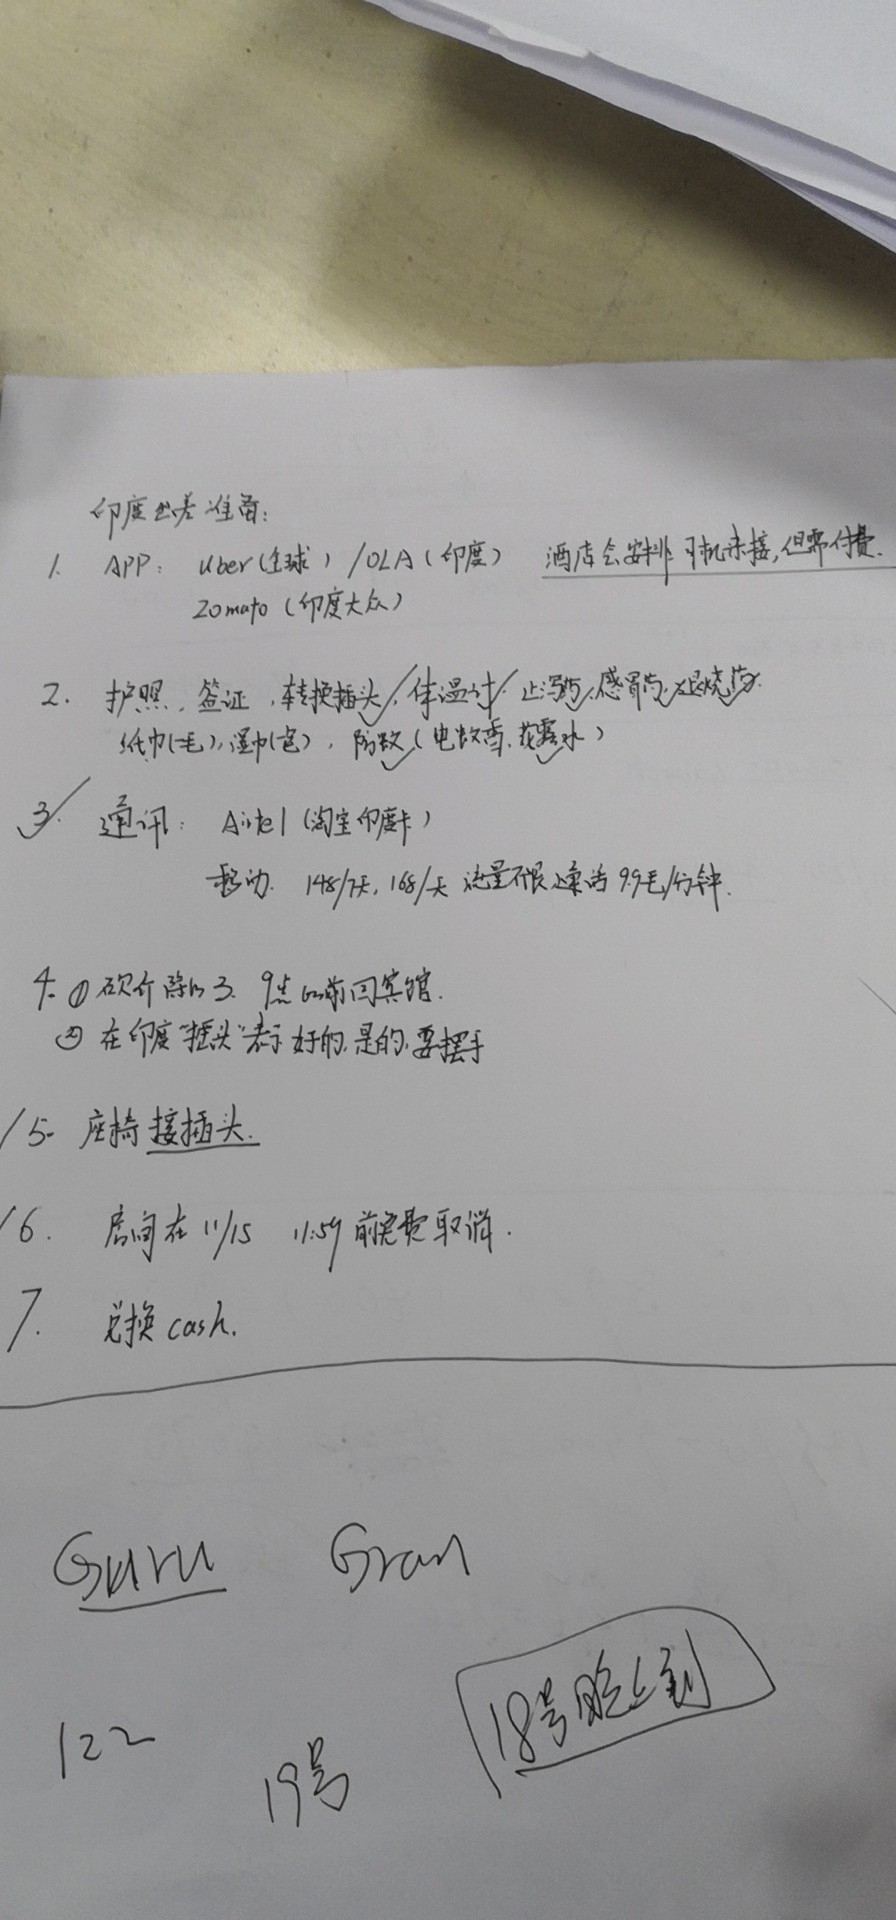 印度出差准备:
1. APP: Uber(全球) / OLA(印度) 酒店会安排司机来接,但需付费.
Zomato(印度大众)
2. 护照、签证,转换插头,体温计,止泻药,感冒药,退烧药.
纸巾(毛),湿巾(包),防蚊(电蚊香.花露水)
3. 通讯: Airtel(淘宝印度卡)
移动. 148/7天, 168/天 流量不限 通话 9.9毛/分钟.
4. ① 砍价除以3. 9点以前回宾馆.
② 在印度"摇头"表示好的,是的,要摆手
5. 座椅接插头.
6. 房间在11/15 11:59前免费取消.
7. 兑换cash.
Guru Gran
18号晚上到
122
19号